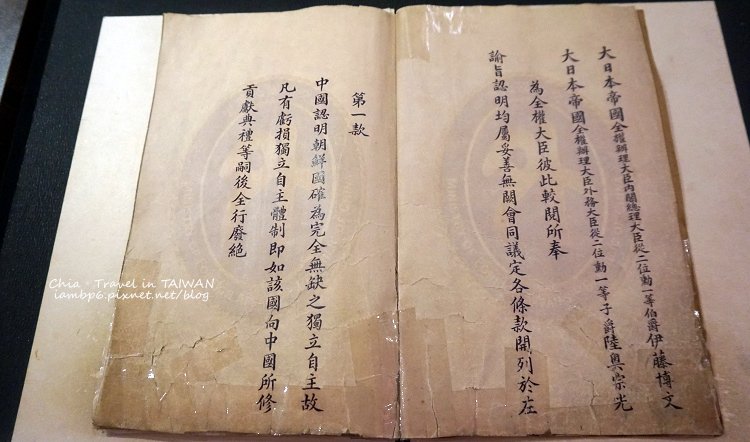 大日本帝國全權辦理大臣內閣總理大臣從二位勳一等伯爵伊藤博文
大日本帝國全權辦理大臣外務大臣從二位勳一等子爵陸奧宗光
為全權大臣彼此較閱所奉
諭旨認明均屬妥善無闕會同議定各條款開列於左
第一款
中國認明朝鮮國確為完全無缺之獨立自主故
凡有虧損獨立自主體制即如該國向中國所修
貢獻典禮等嗣後全行廢絕
Chia · Travel in TAIWAN
iambp6.pixnet.net/blog